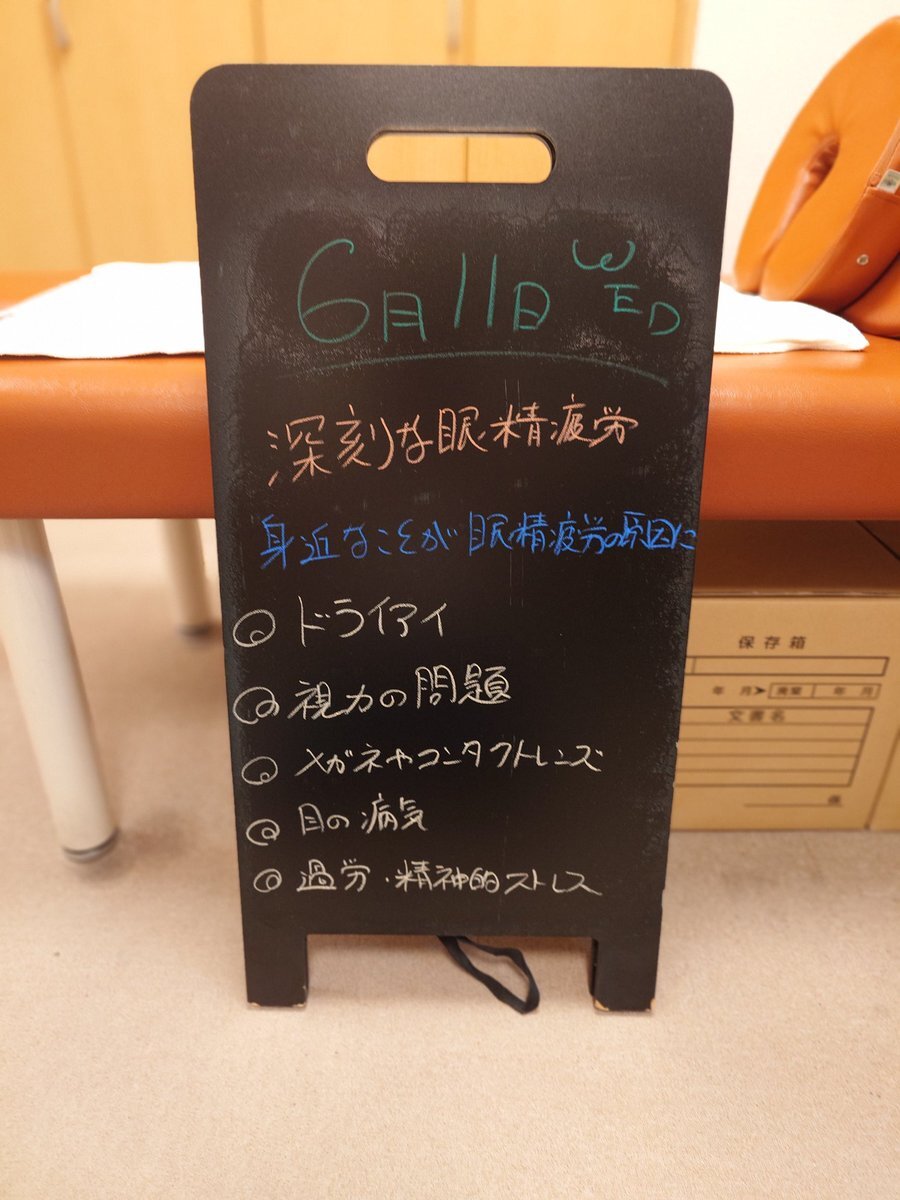 6月11日 WED
深刻な眼精疲労
身近なことが眼精疲労の原因に
◎ ドライアイ
◎ 視力の問題
◎ メガネやコンタクトレンズ
◎ 目の病気
◎ 過労・精神的ストレス
保存箱
年 月 廃棄 年 月
文書名